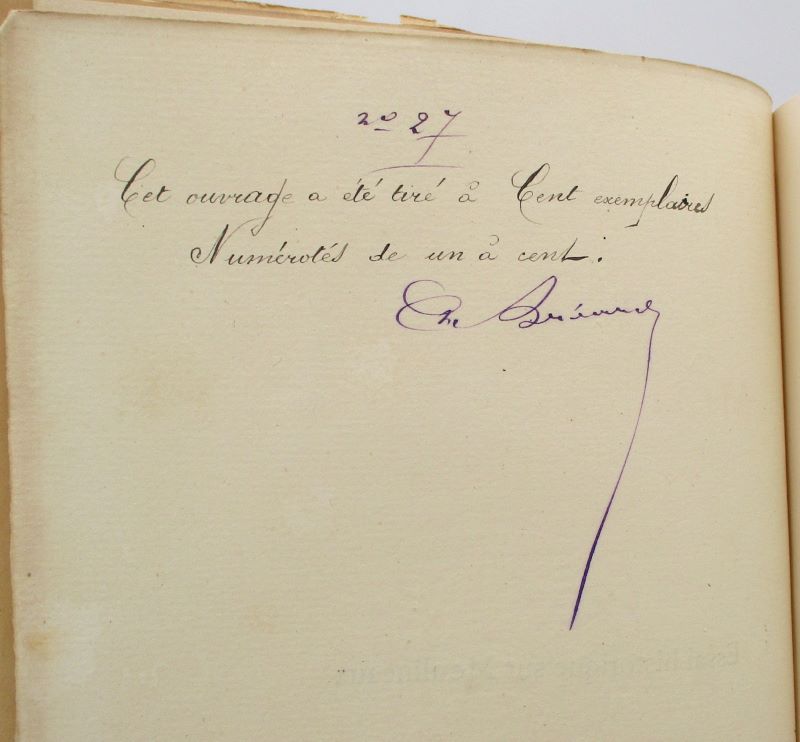 no 27
Cet ouvrage a été tiré à Cent exemplaires
Numérotés de un à cent.
Ch Bréard